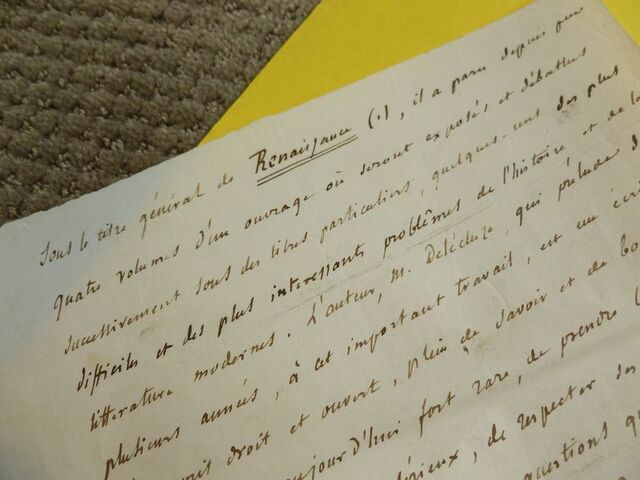 Sous le titre général de Renaissance (1), il a paru depuis peu
quatre volumes d'un ouvrage où seront exposés et débattus
successivement sous des titres particuliers, quelques-uns des plus
difficiles et des plus interessants problêmes de l'histoire et de la
litterature modernes. L'auteur, M. Delécluze, qui prélude d
plusieurs années, à cet important travail, est un écri
droit et ouvert, plein de savoir et de bo
aujourd'hui fort rare, de prendre
de respecter ses
questions